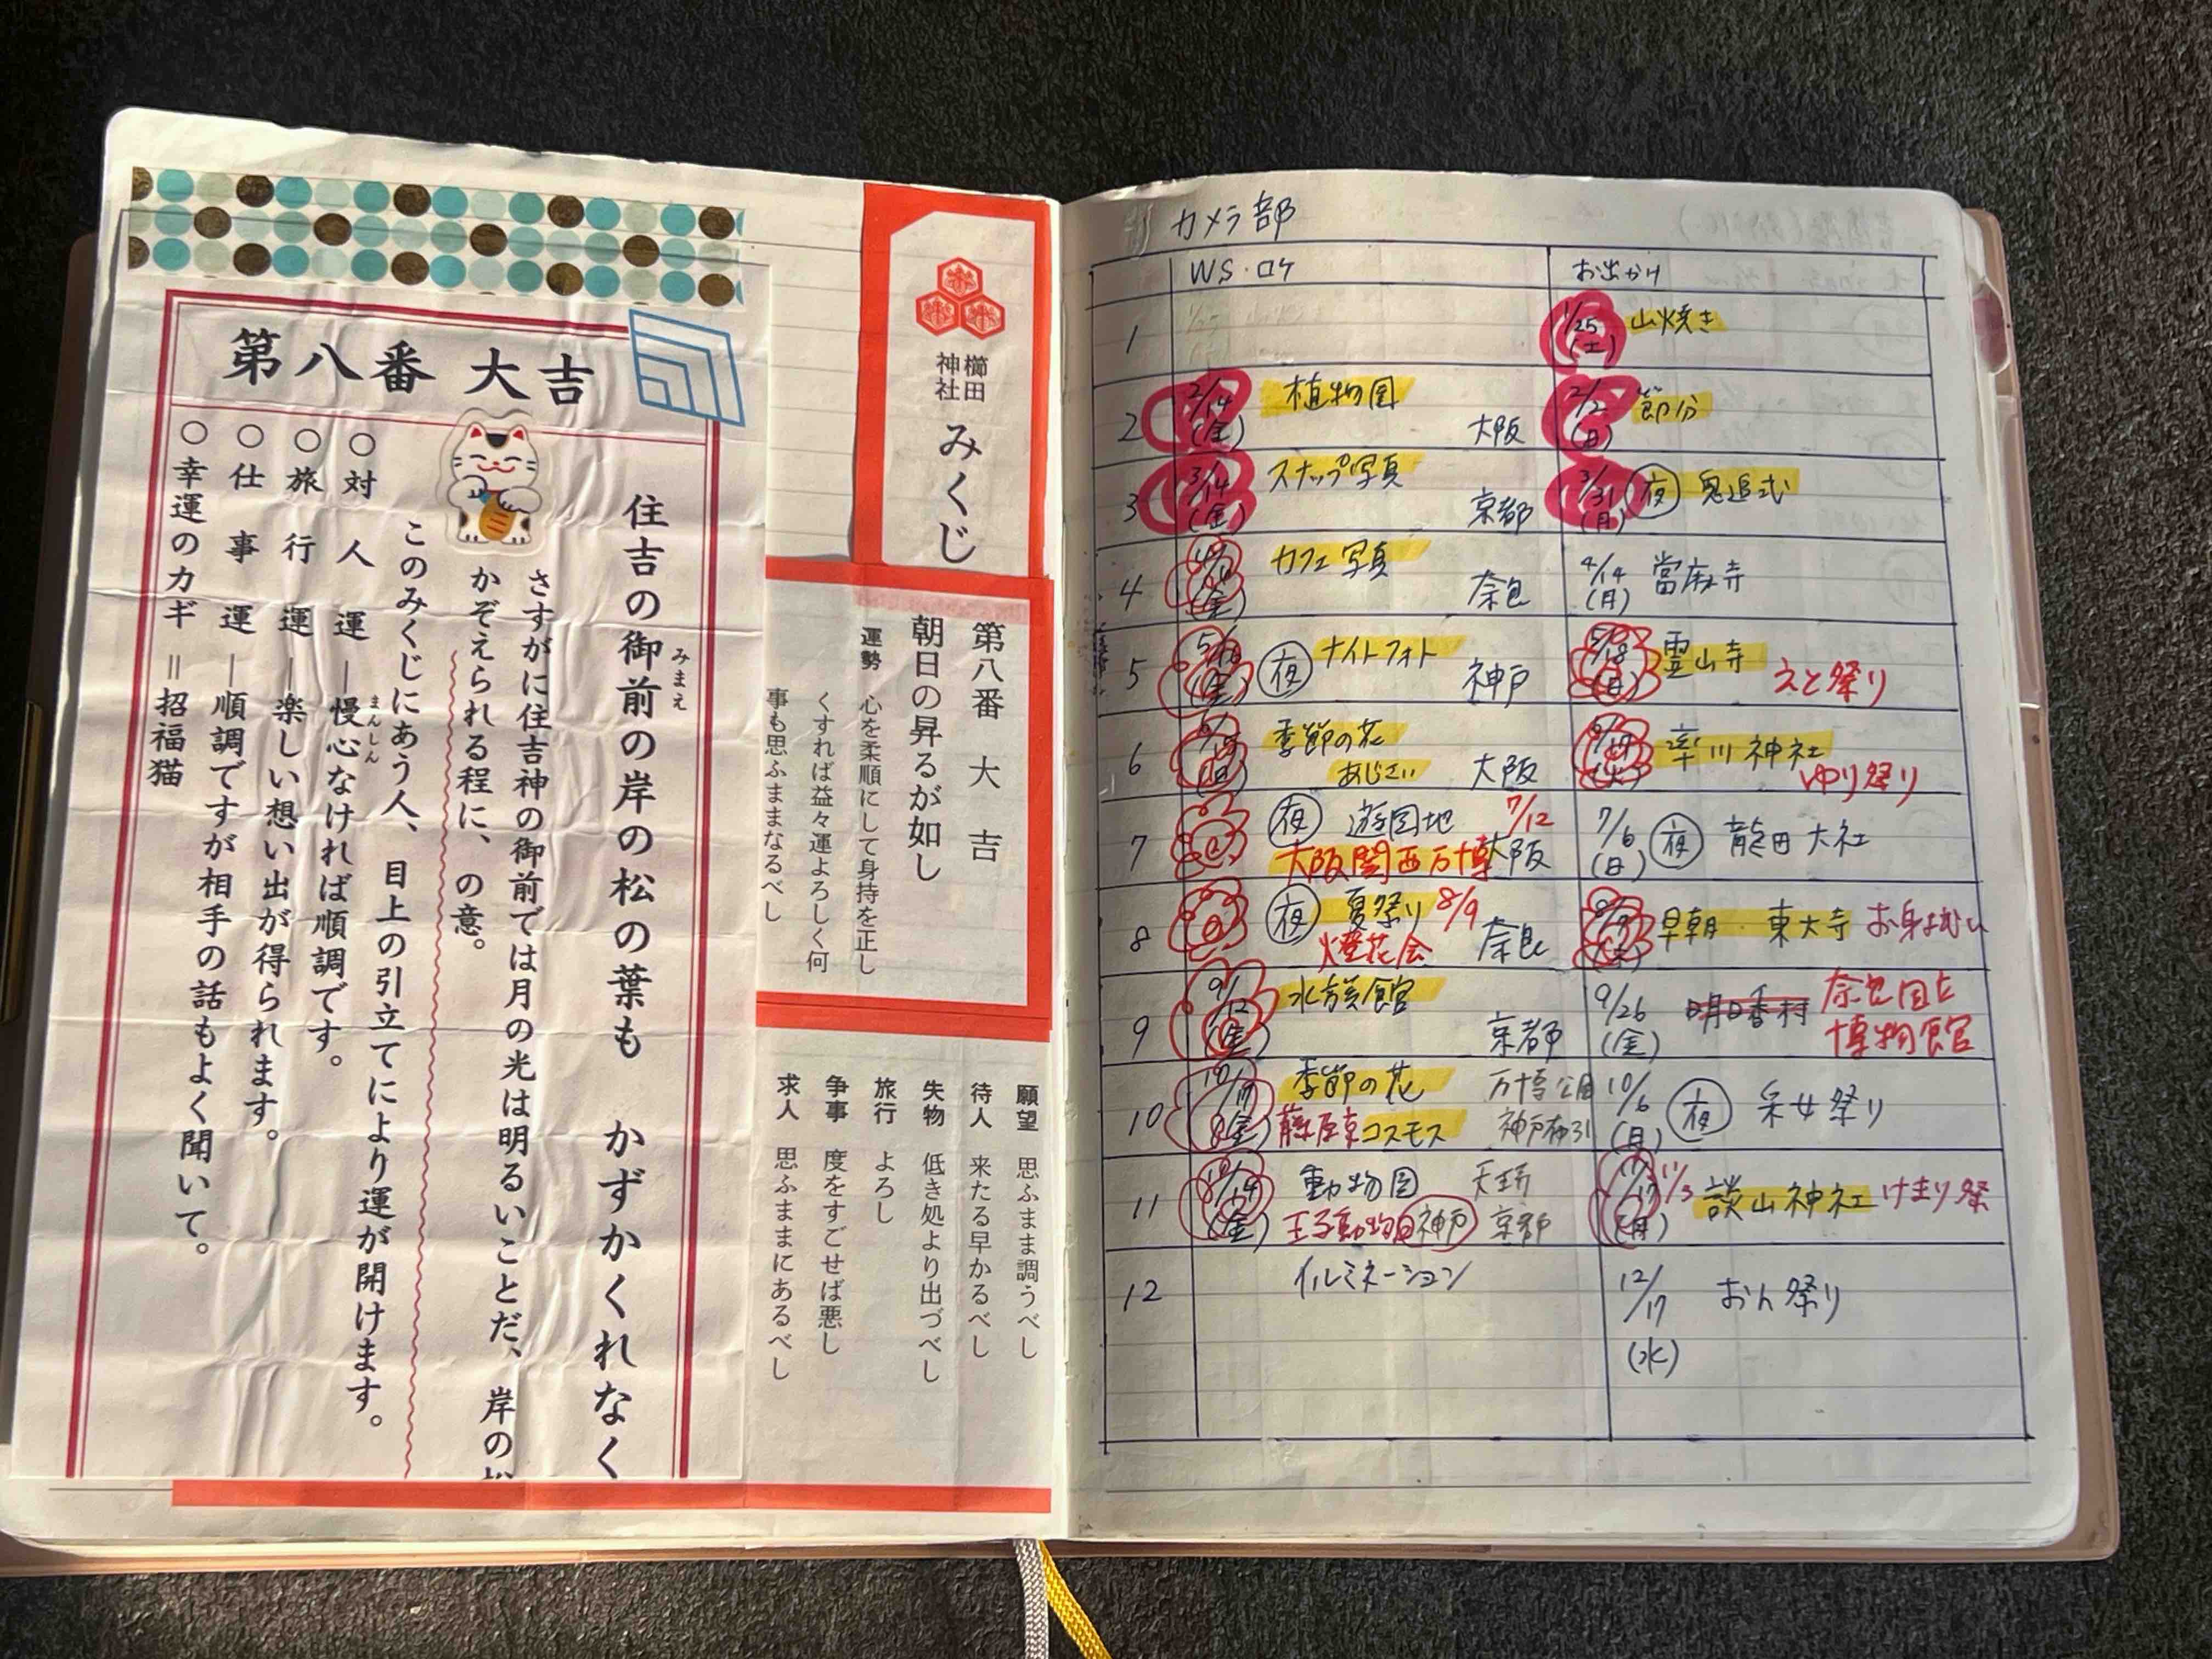 第八番 大吉
住吉の御前の岸の松の葉も かずかくれなく
みまえ
さすがに住吉神の御前では月の光は明るいことだ、岸の
かぞえられる程に、の意。
このみくじにあう人、目上の引立てにより運が開けます。
○対人運―慢心なければ順調です。
まんしん
○旅行運―楽しい想い出が得られます。
○仕事運―順調ですが相手の話もよく聞いて。
○幸運のカギ＝招福猫
櫛田
神社
みくじ
第八番 大吉
朝日の昇るが如し
運勢 心を柔順にして身持を正し
くすれば益々運よろしく何
事も思ふままなるべし
願望 思ふまま調うべし
待人 来たる早かるべし
失物 低き処より出づべし
旅行 よろし
争事 度をすごせば悪し
求人 思ふままにあるべし
カメラ部
WS・ロケ お出かけ
1 1/25 (土) 山焼き
2 2/14 (金) 植物園 大阪 2/2 (日) 節分
3 3/14 (金) スナップ写真 京都 3/31 (月) 夜 鬼追式
4 (金) カフェ写真 奈良 4/14 (月) 當麻寺
5 (金) 夜 ナイトフォト 神戸 5/18 (日) 霊山寺 えと祭り
6 (日) 季節の花 あじさい 大阪 6/17 (火) 率川神社 ゆり祭り
7 夜 遊園地 7/12 大阪関西万博 大阪 7/6 (日) 夜 龍田大社
8 夜 夏祭り 8/9 燈花会 奈良 早朝・東大寺 お身ぬぐい
9 9/12 (金) 水族館 京都 9/26 (金) 明日香村 奈良国立博物館
10 10/17 (金) 季節の花 万博公園 藤原京コスモス 神戸布引 10/6 (月) 夜 采女祭り
11 11/14 (金) 動物園 天王寺 王子動物園 神戸 京都 11/17 (月) 11/3 談山神社 けまり祭
12 イルミネーション 12/17 (水) おん祭り